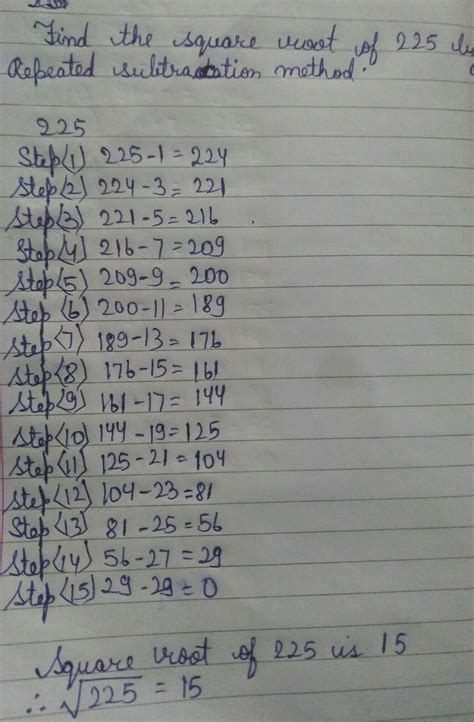 Find the square root of 225 by
Repeated subtraction method.
225
Step(1) 225-1 = 224
Step(2) 224-3 = 221
Step(3) 221-5 = 216
Step(4) 216-7 = 209
Step(5) 209-9 = 200
Step (6) 200-11 = 189
Step(7) 189-13 = 176
Step(8) 176-15 = 161
Step(9) 161-17 = 144
Step(10) 144-19 = 125
Step(11) 125-21 = 104
Step(12) 104-23 = 81
Step(13) 81-25 = 56
Step(14) 56-27 = 29
Step(15) 29-29 = 0
Square root of 225 is 15
∴ √225 = 15